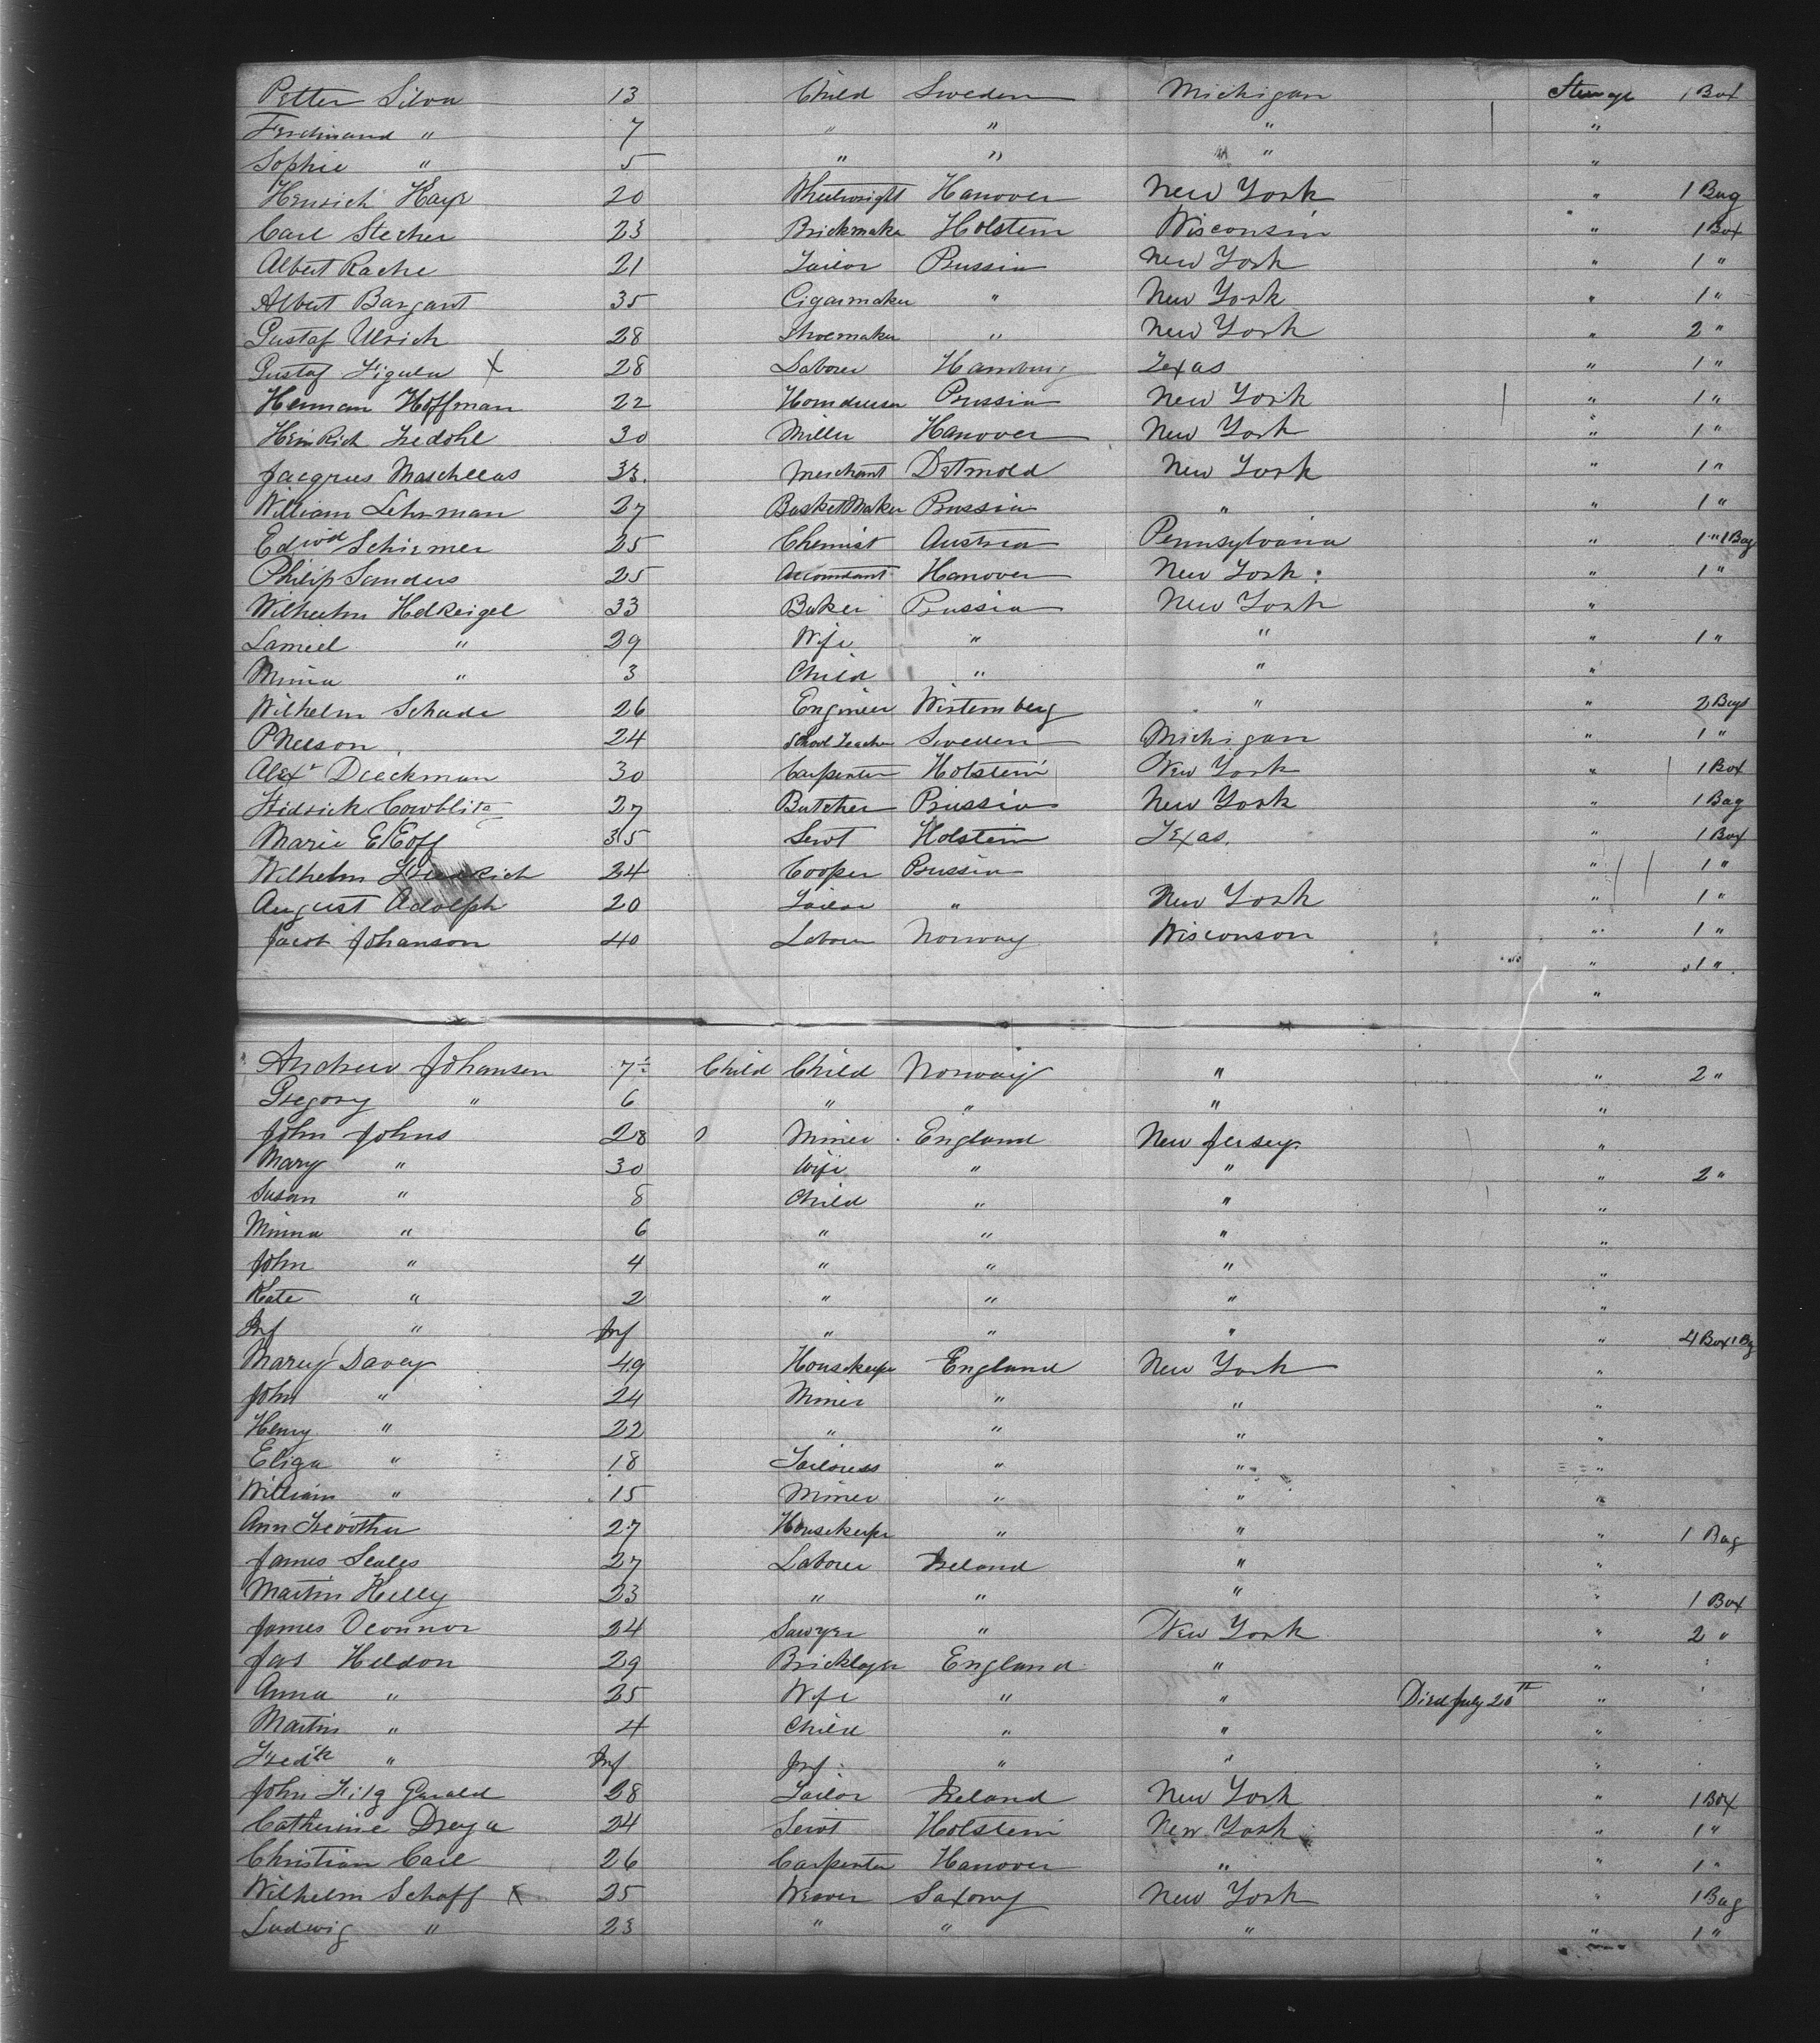 Petter Silva 13 Child Sweden Michigan Steerage 1 Box
Ferdinand " 7 " " " "
Sophie " 5 " " " "
Henrich Kayr 20 Wheelwright Hanover New York " 1 Bag
Carl Stecher 23 Brickmaker Holstein Wisconsin " 1 Box
Albert Rache 21 Tailor Prussia New York " 1 "
Albert Bargant 35 Cigarmaker " New York " 1 "
Gustaf Ulrich 28 Shoemaker " New York " 2 "
Gustaf Figula X 28 Laborer Hamburg Texas " 1 "
Herman Hoffman 22 Prussia New York " 1 "
HeinRich Tredohl 30 Miller Hanover New York " 1 "
Jacques 33. Merchant Detmold New York " 1 "
William Lehrman 27 BasketMaker Prussia " " 1 "
Edwd Schirmer 25 Chemist Austria Pennsylvania " 1 " 1 Bag
Philip Sanders 25 Accountant Hanover New York : " 1 "
Wilhelm 33 Baker Prussia New York "
" 29 Wife " " " 1 "
Minna " 3 Child " " "
Wilhelm Schade 26 Engineer Wirtemberg " " 2 Bags
P Nelson 24 School Teacher Sweden Michigan " 1 "
Alexr Dieckman 30 Carpenter Holstein New York " 1 Box
Fridrick 27 Butcher Prussia New York " 1 Bag
Marie 35 Sevt Holstein Texas. " 1 Box
Wilhelm 24 Cooper Prussia " 1 "
August Adolph 20 Tailor " New York " 1 "
Jacob Johanson 40 Laborer Norway Wisconson " 1 "
" 1 "
"
Andrew Johansen 7 Child Child Norway " " 2 "
Gregory " 6 " " " "
John Johns 28 Miner England New Jersey "
Mary " 30 Wife " " " 2 "
Susan " 8 Child " " "
Minna " 6 " " " "
John " 4 " " " "
Kate " 2 " " " "
Inf " Inf " " " " 4 Box 1 Bg
Mary Davey 49 Housekeeper England New York "
John " 24 Miner " " "
Henry " 22 " " " "
Eliza " 18 Tailoress " " "
William " 15 Miner " " "
Ann 27 Housekeeper " " " 1 Bag
James Scales 27 Laborer Ireland " "
Martin Kelly 23 " " " " 1 Box
James Oconnor 24 Sawyer " New York " 2 "
Jas Heldon 29 Bricklayer England " "
Anna " 25 Wife " " Died July 26th "
Martin " 4 Child " " "
Fredk " Inf Inf : " " "
John Fitz Gerald 28 Tailor Ireland New York " 1 Box
Catherine Dreya 24 Sevt Holstein New York " 1 "
Christian Carl 26 Carpenter Hanover " " 1 "
Wilhelm Schaff X 25 Weaver Saxony New York " 1 Bag
Ludwig " 23 " " " " 1 "